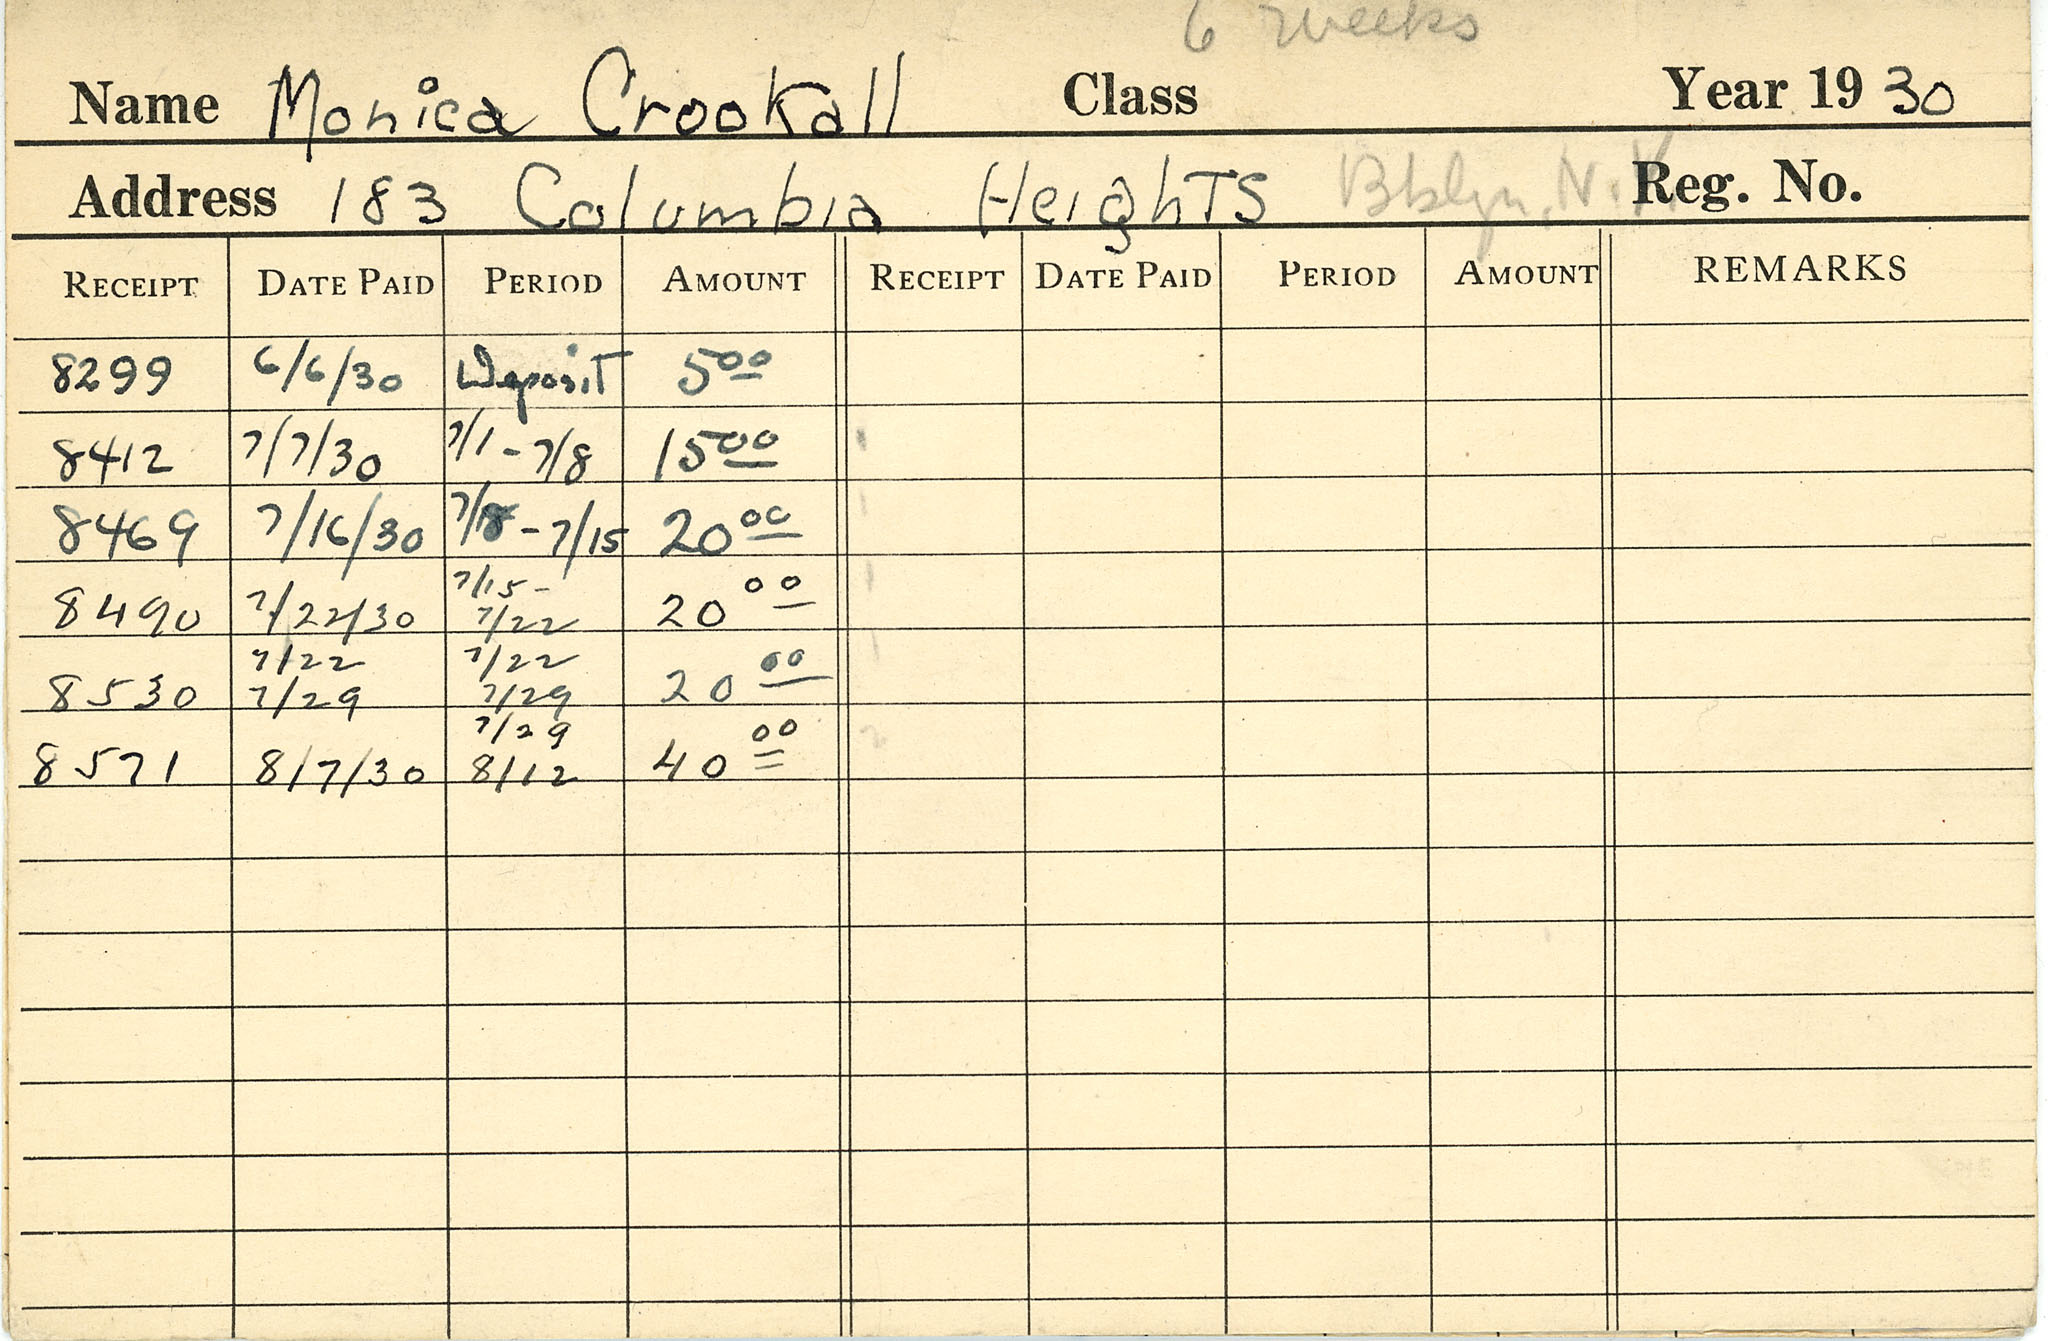 6 weeks
Name Monica Crookall Class Year 19 30
Address 183 Columbia Heights Bklyn, N.Y. Reg. No.
RECEIPT DATE PAID PERIOD AMOUNT RECEIPT DATE PAID PERIOD AMOUNT REMARKS
8299 6/6/30 Deposit 5 00
8412 7/7/30 7/1 - 7/8 15 00 1
8469 7/16/30 7/8 - 7/15 20 00 1
7/15 -
8490 7/22/30 7/22 20 00 1
7/22 7/22
8530 7/29 7/29 20 00 1
7/29
8571 8/7/30 8/12 40 00 2